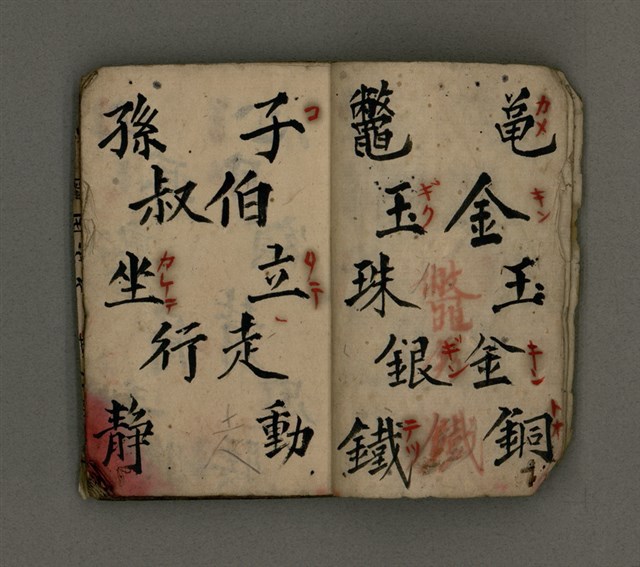 亀金玉金銅
カメ
キン
キン
鼈玉珠銀鐵
ギク
ギン
テツ
鼈
鐵
子伯立走動
コ
タテ
孫叔坐行静
走